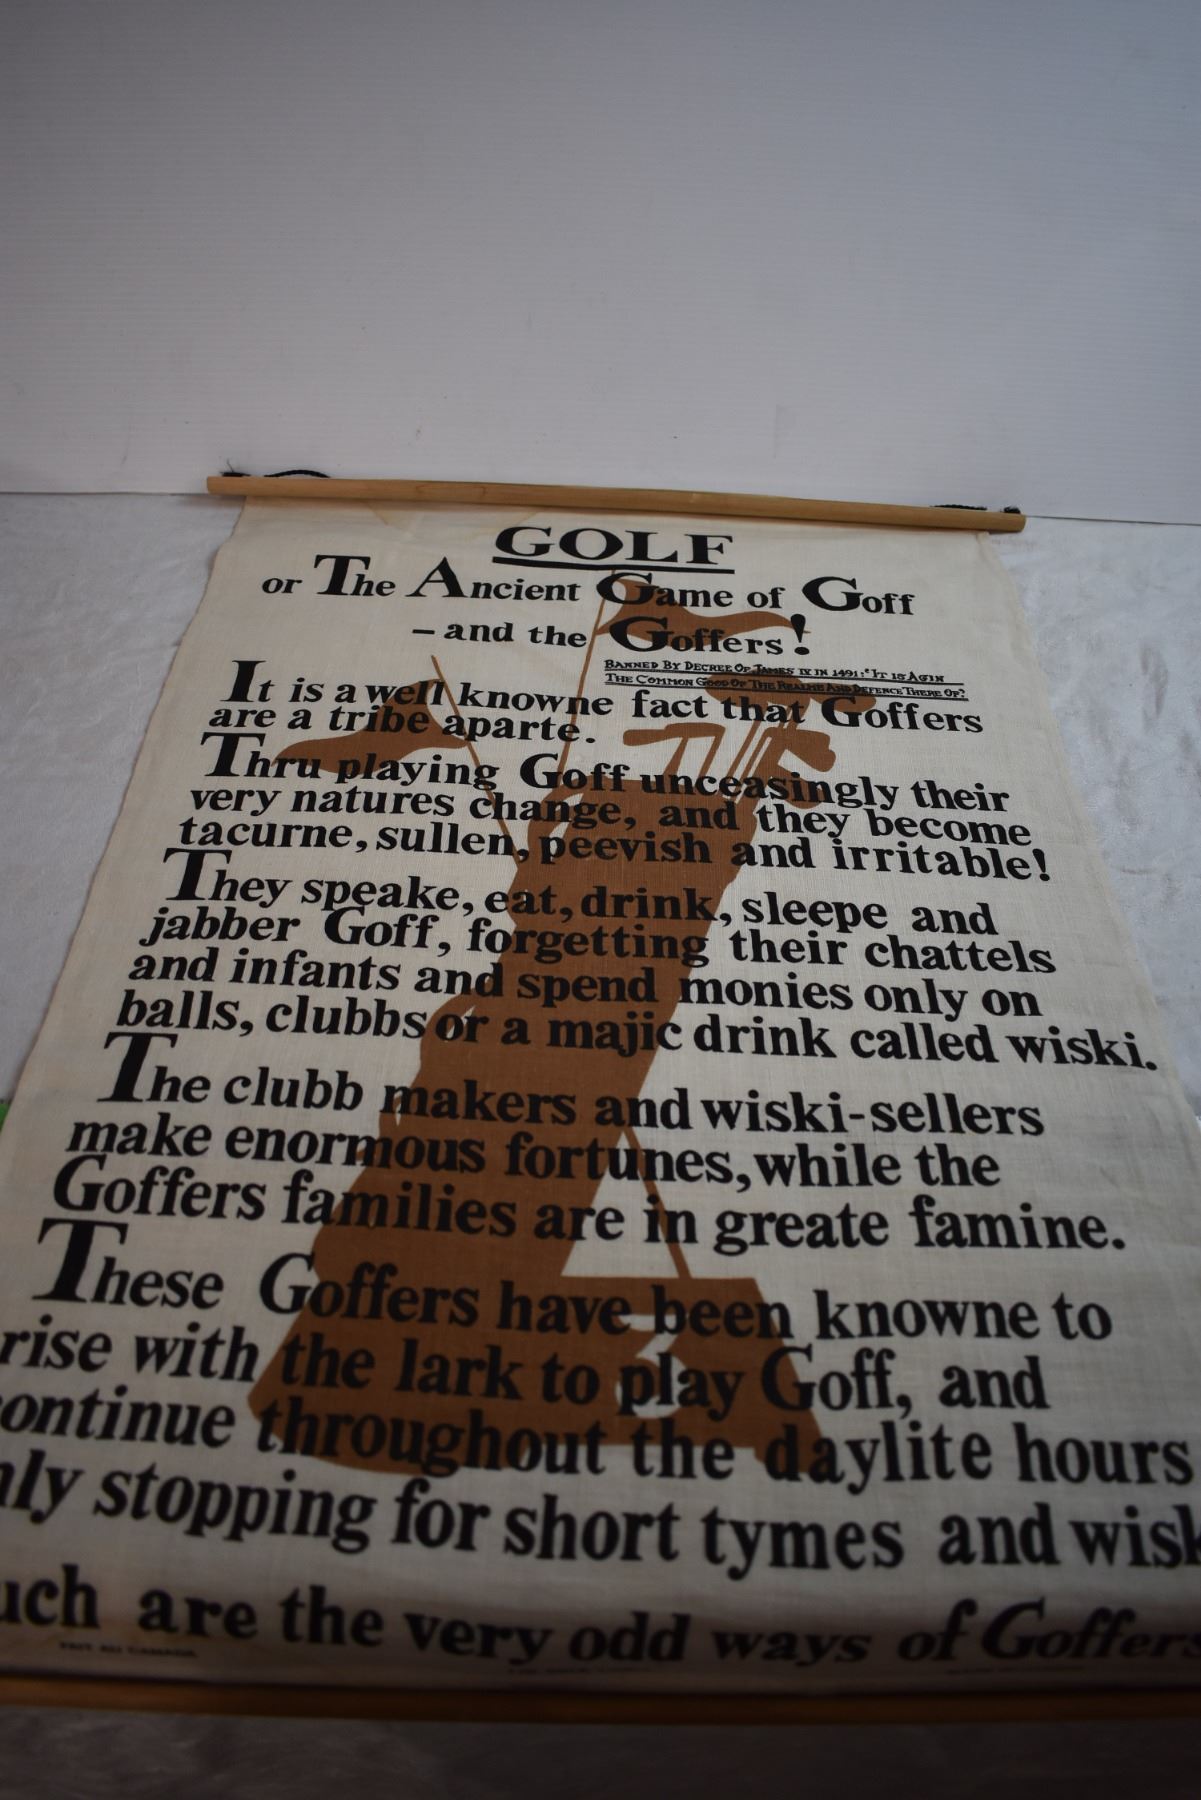 GOLF
or The Ancient Game of Goff
- and the Goffers!
BANNED BY DECREE OF JAMES IV IN 1491: "IT IS AGIN
THE COMMON GOOD OF THE REALME AND DEFENCE THERE OF?
It is a well knowne fact that Goffers
are a tribe aparte.
Thru playing Goff unceasingly their
very natures change, and they become
tacurne, sullen, peevish and irritable!
They speake, eat, drink, sleepe and
jabber Goff, forgetting their chattels
and infants and spend monies only on
balls, clubbs or a majic drink called wiski.
The clubb makers and wiski-sellers
make enormous fortunes, while the
Goffers families are in greate famine.
These Goffers have been knowne to
rise with the lark to play Goff, and
ontinue throughout the daylite hours
nly stopping for short tymes and wisk
uch are the very odd ways of Goffers
3